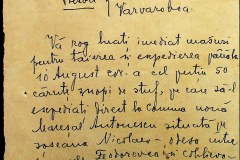 Varvarovca
Vă rog luati imediat masuri
pentru tăierea si expedierea până la
10 August cor. a cel puțin 50
căruti snopi de stuf, pe care să-l
expediati direct la comuna nouă
Mareșal Antonescu situata pe
soseaua Nicolaev - Odesa intre
Feodorovca și Coblievo